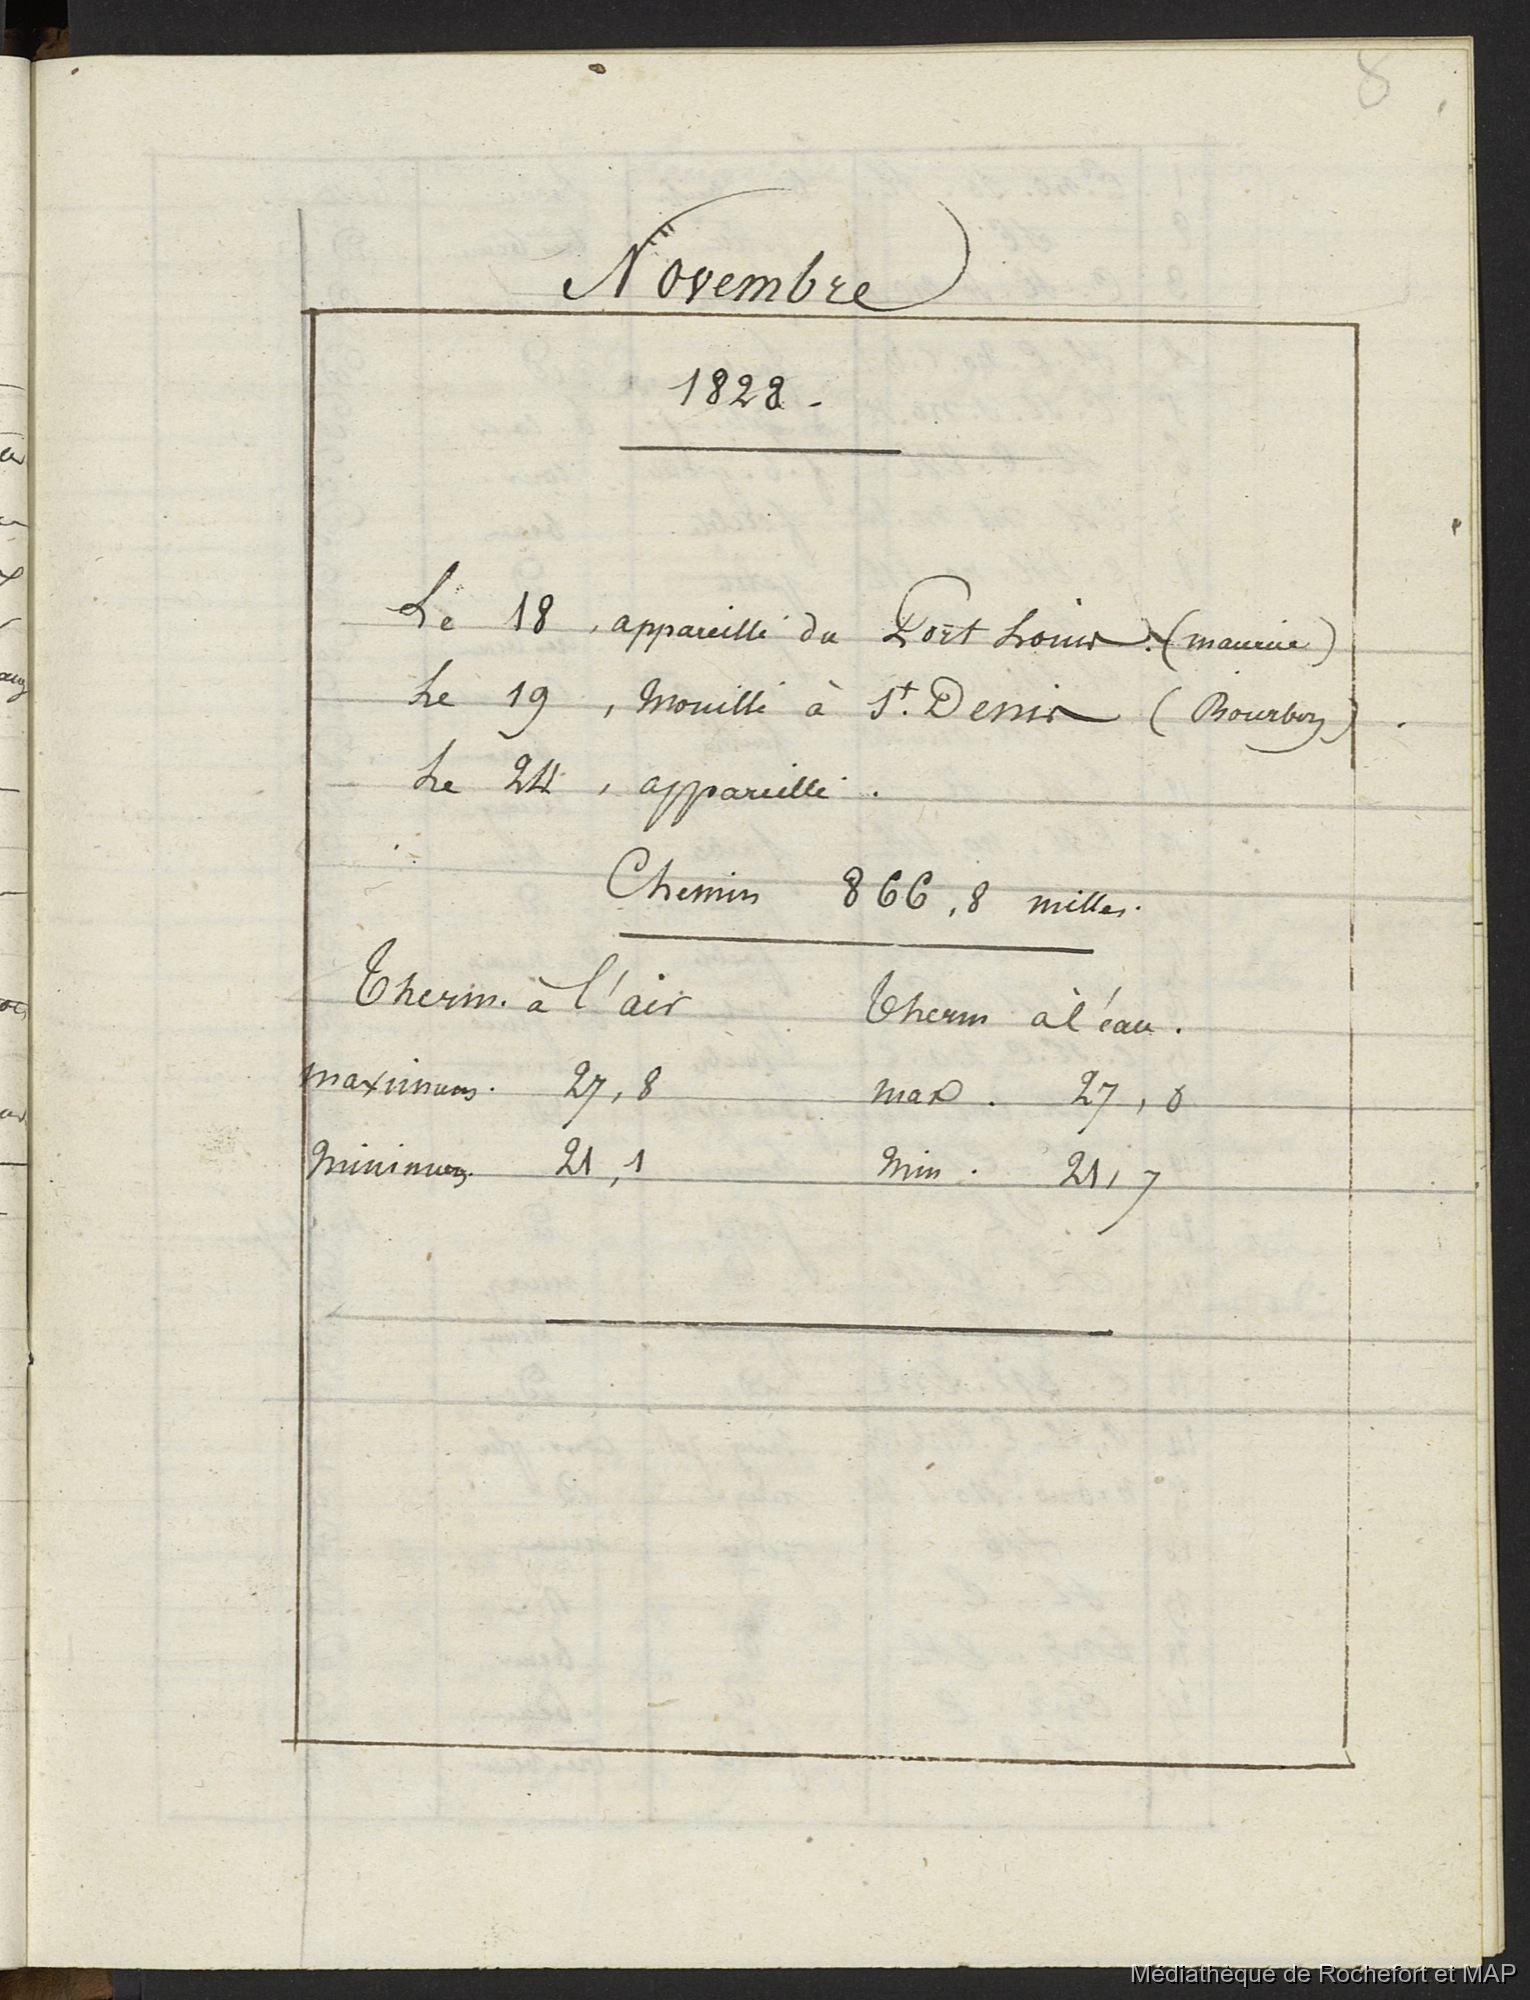 8
Novembre
1828.
Le 18, appareillé du Port Louis. (maurice)
Le 19, Mouillé à St. Denis (Bourbon).
Le 24, appareillé.
Chemin 866,8 milles.
Therm. à l'air Therm à l'eau.
maximum. 27,8 max. 27,8
Minimum. 21,1 Min. 21,7
Médiathèque de Rochefort et MAP